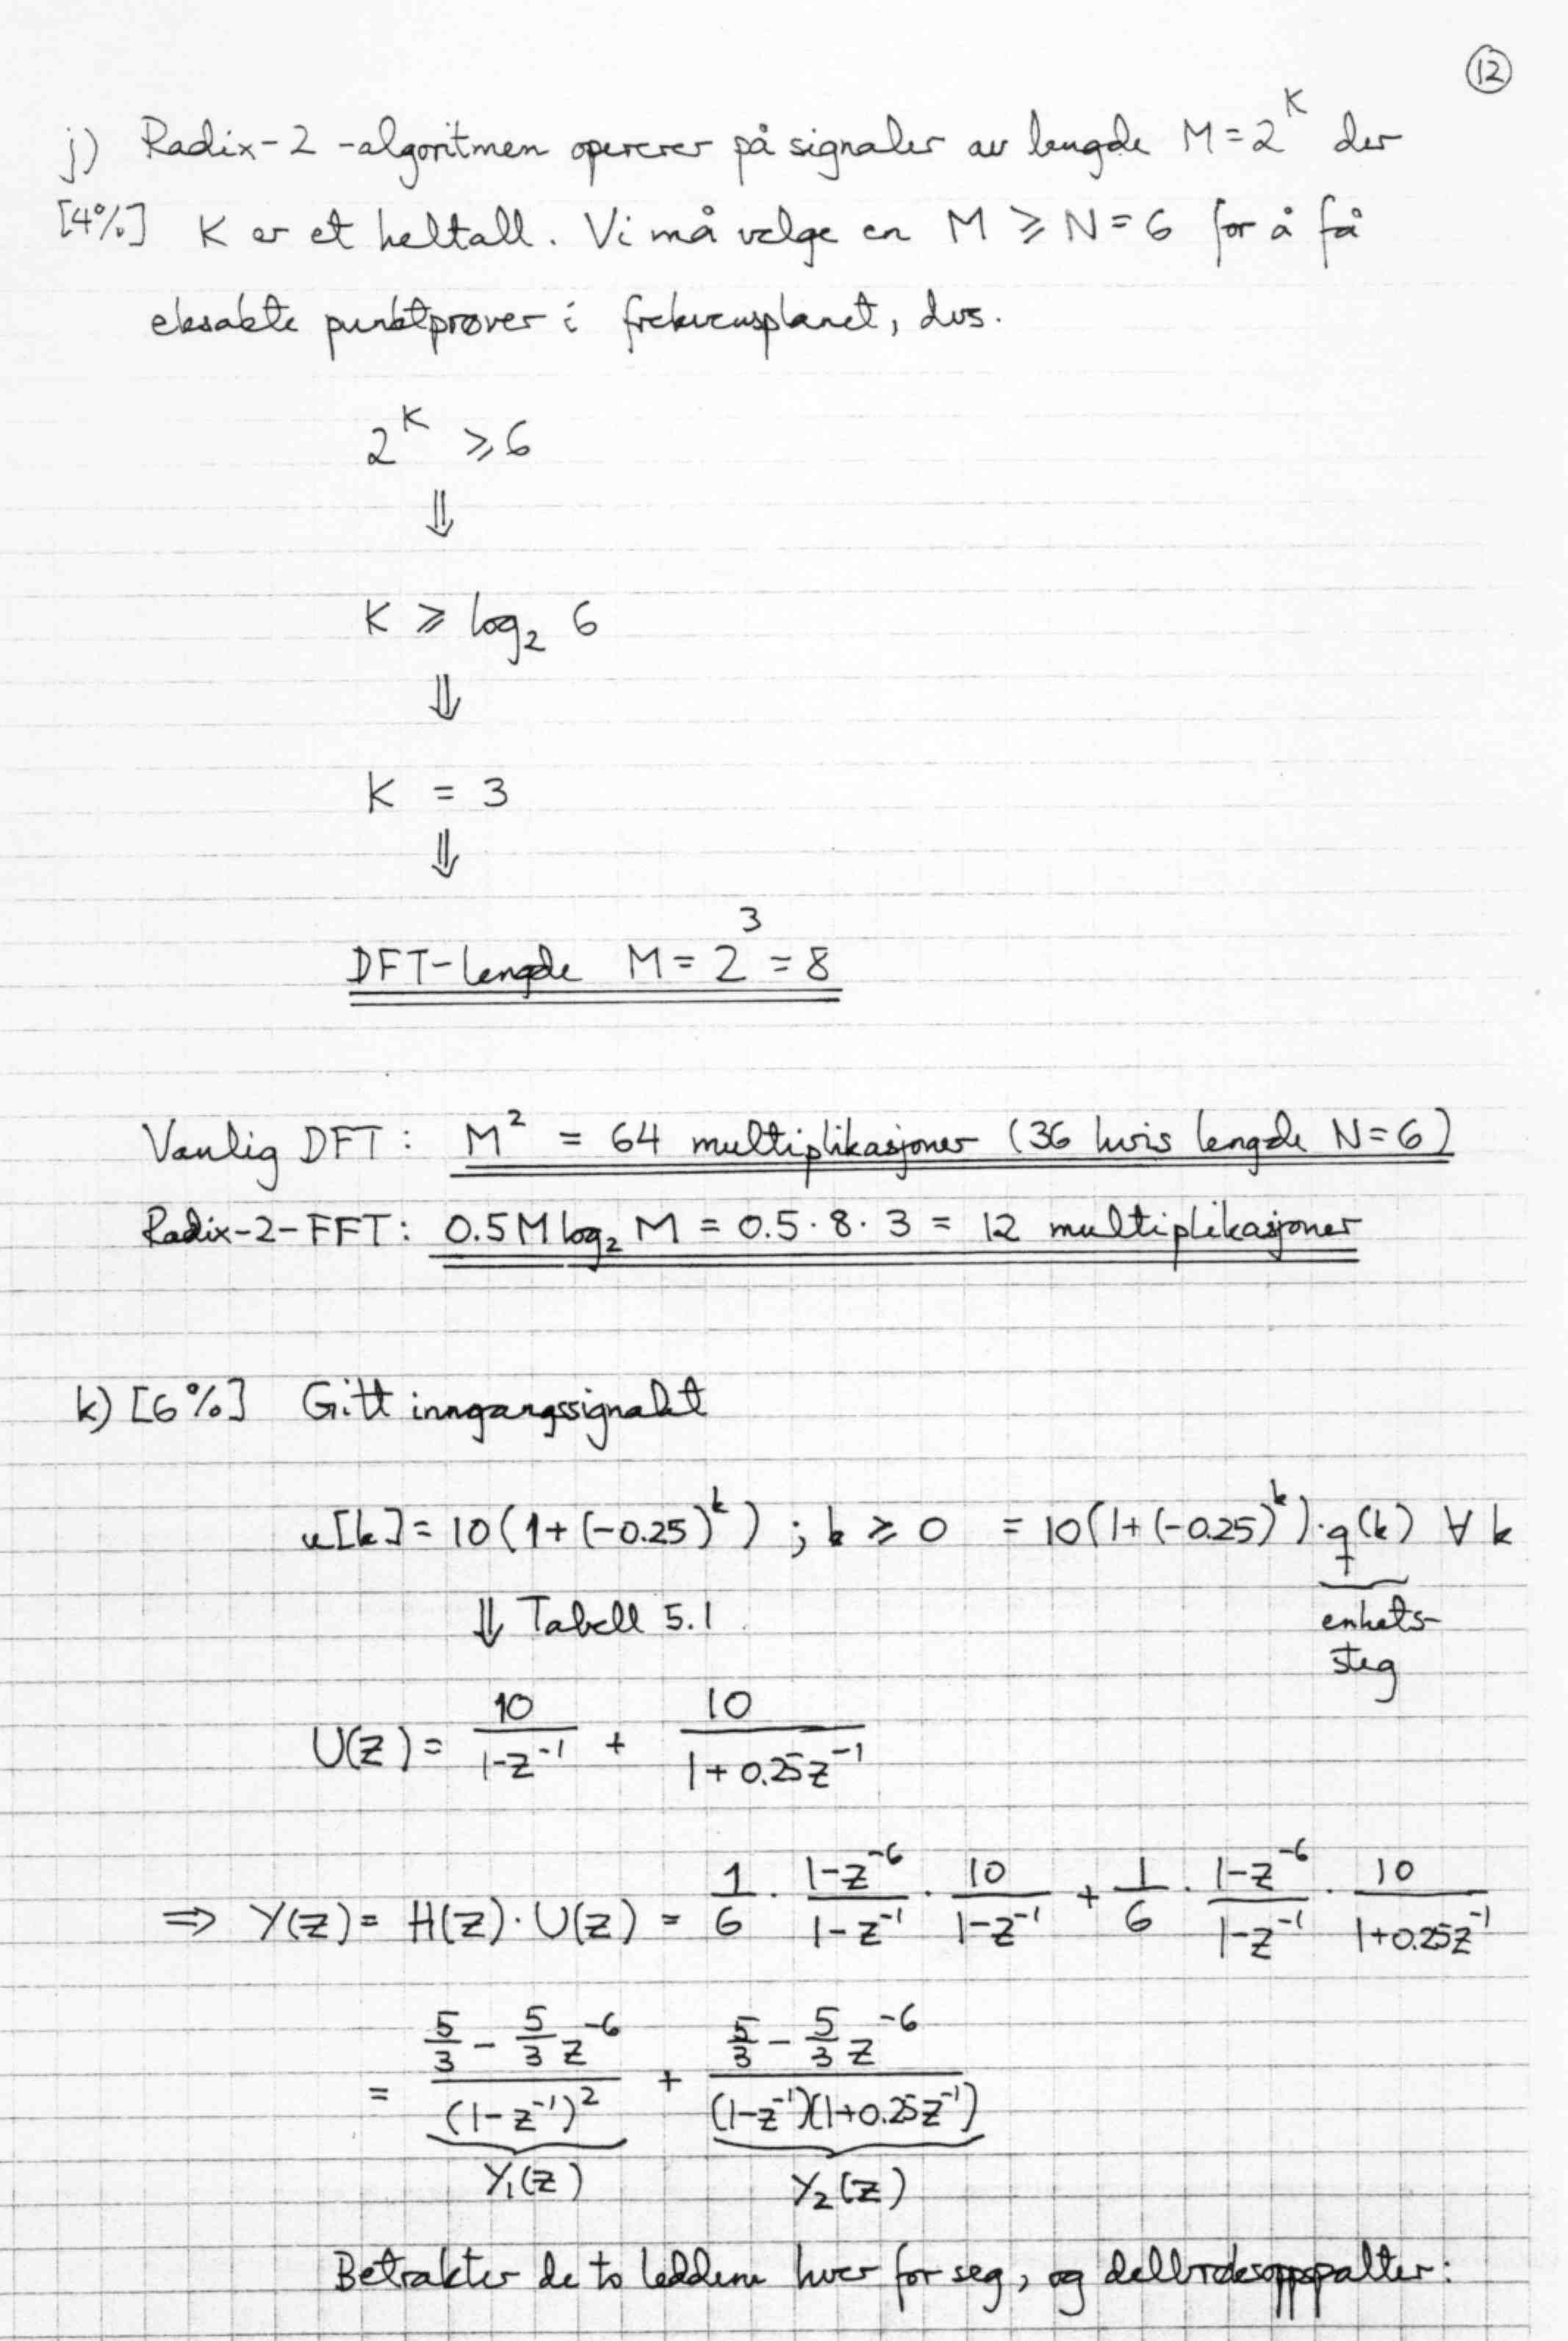 12
j) Radix-2-algoritmen opererer på signaler av lengde M=2^K der
[4%] K er et heltall. Vi må velge en M ≥ N=6 for å få
eksakte punktprøver i frekvensplanet, dvs.
2^K ≥ 6
⇓
K ≥ log₂ 6
⇓
K = 3
⇓
DFT-lengde M = 2^3 = 8
Vanlig DFT: M² = 64 multiplikasjoner (36 hvis lengde N=6)
Radix-2-FFT: 0.5 M log₂ M = 0.5·8·3 = 12 multiplikasjoner
k) [6%] Gitt inngangssignalet
u[k] = 10(1+(-0.25)^k) ; k ≥ 0 = 10(1+(-0.25)^k)·q(k) ∀ k
⇓ Tabell 5.1
enhets-
steg
U(z) = 10/(1-z^-1) + 10/(1+0.25z^-1)
⇒ Y(z) = H(z)·U(z) = 1/6 · (1-z^-6)/(1-z^-1) · 10/(1-z^-1) + 1/6 · (1-z^-6)/(1-z^-1) · 10/(1+0.25z^-1)
= (5/3 - 5/3 z^-6)/((1-z^-1)^2) + (5/3 - 5/3 z^-6)/((1-z^-1)(1+0.25z^-1))
Y₁(z) Y₂(z)
Betrakter de to leddene hver for seg, og delbrøksoppspalter: